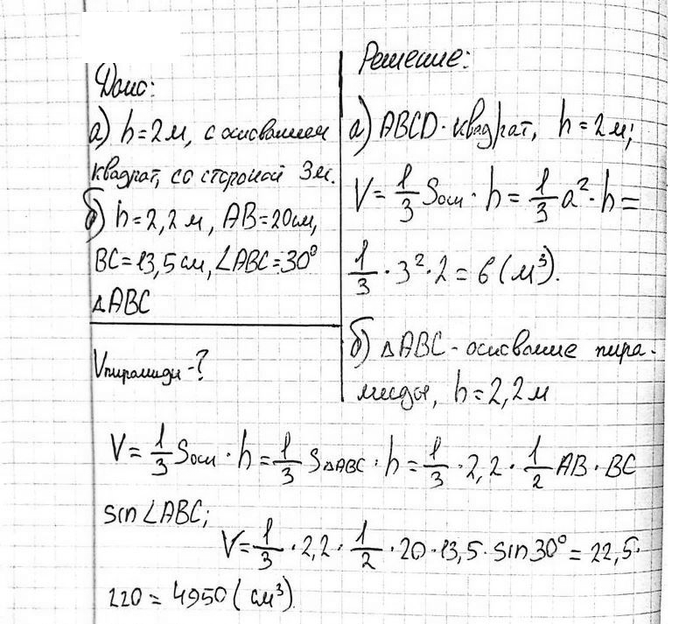 Дано:
а) h=2м, с основанием
квадрат, со стороной 3м.
б) h=2,2м, AB=20см,
BC=13,5см, ∠ABC=30°
△ABC
Vпирамиды-?
Решение:
а) ABCD-квадрат, h=2м;
V=1/3 Sосн · h = 1/3 a² · h =
1/3 · 3² · 2 = 6 (м³).
б) △ABC - основание пира-
миды, h=2,2м
V=1/3 Sосн · h = 1/3 S△ABC · h = 1/3 · 2,2 · 1/2 AB · BC
sin∠ABC;
V=1/3 · 2,2 · 1/2 · 20 · 13,5 · sin30° = 22,5·
220 = 4950 (см³).